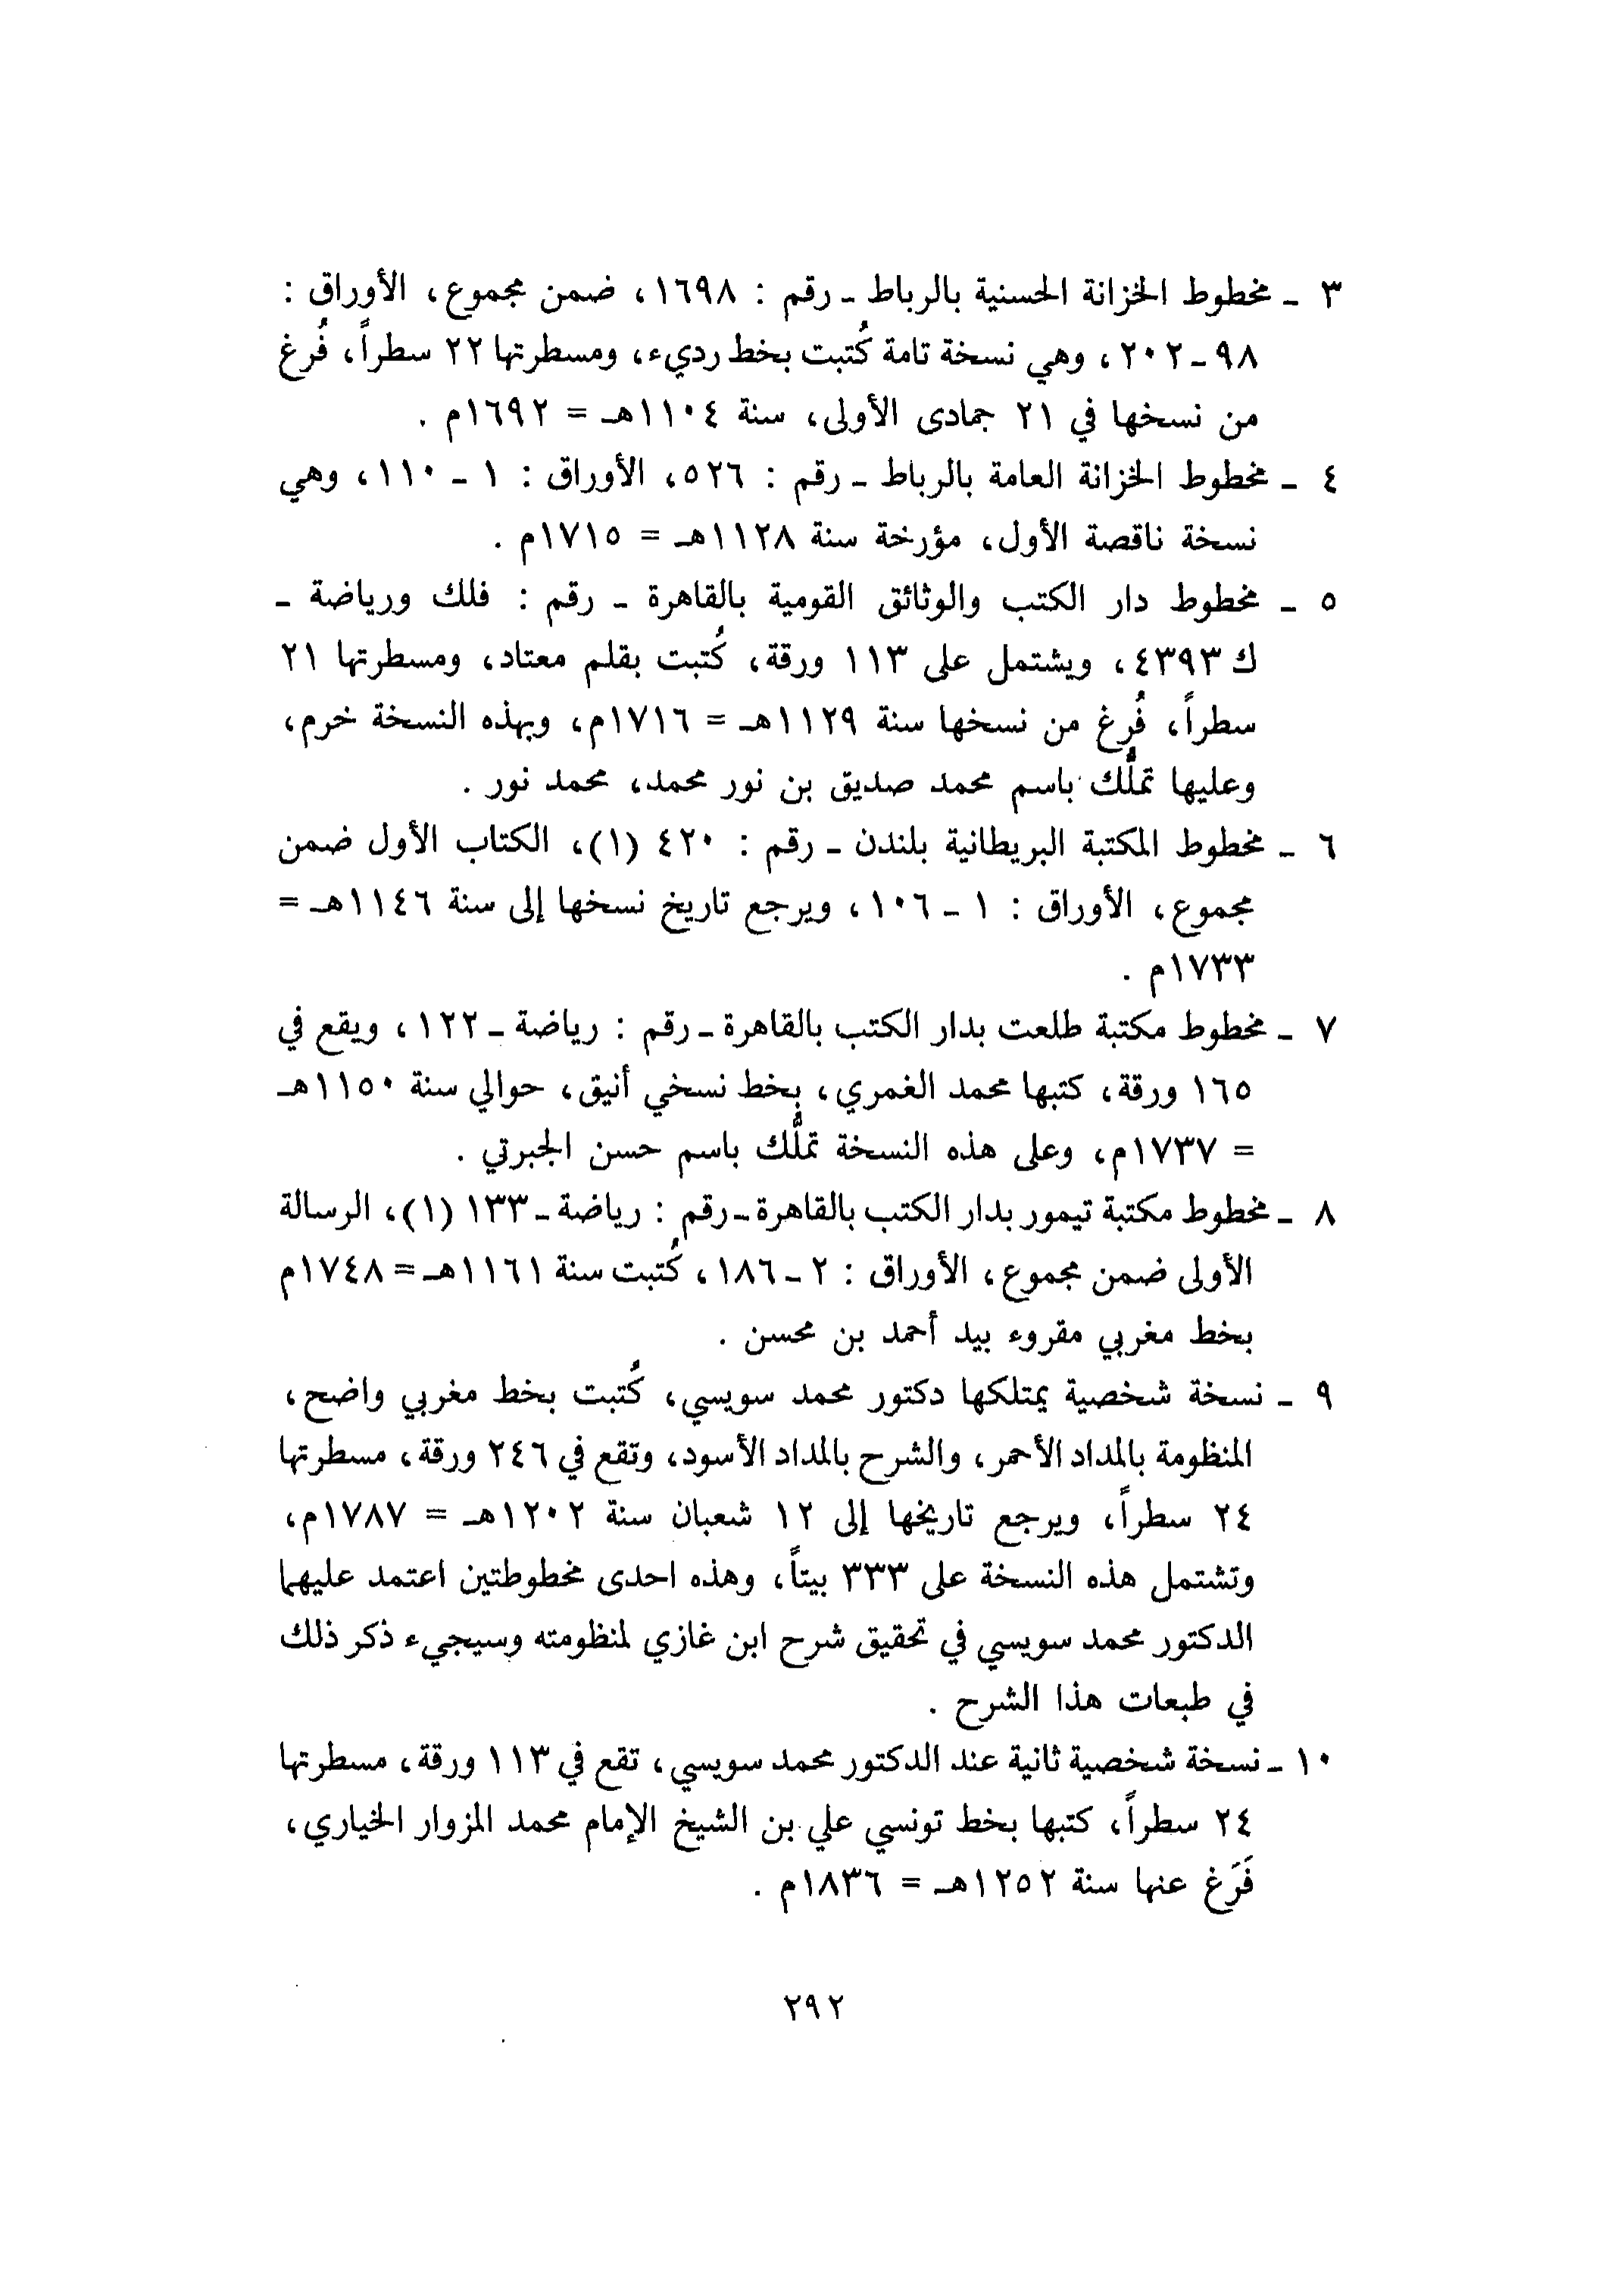 ٣ ـ مخطوط الخزانة الحسنية بالرباط ـ رقم : ١٦٩٨، ضمن مجموع، الأوراق :
٩٨ ـ ٢٠٢، وهي نسخة تامة كُتبت بخط رديء، ومسطرتها ٢٢ سطراً، فُرغ
من نسخها في ٢١ جمادى الأولى، سنة ١١٠٤هـ = ١٦٩٢م .
٤ ـ مخطوط الخزانة العامة بالرباط ـ رقم : ٥٢٦، الأوراق : ١ ـ ١١٠، وهي
نسخة ناقصة الأول، مؤرخة سنة ١١٢٨هـ = ١٧١٥م .
٥ ـ مخطوط دار الكتب والوثائق القومية بالقاهرة ـ رقم : فلك ورياضة ـ
ك ٤٣٩٣، ويشتمل على ١١٣ ورقة، كُتبت بقلم معتاد، ومسطرتها ٢١
سطراً، فُرغ من نسخها سنة ١١٢٩هـ = ١٧١٦م، وبهذه النسخة خرم،
وعليها تملُّك باسم محمد صديق بن نور محمد، محمد نور .
٦ ـ مخطوط المكتبة البريطانية بلندن ـ رقم : ٤٢٠ (١)، الكتاب الأول ضمن
مجموع، الأوراق : ١ ـ ١٠٦، ويرجع تاريخ نسخها إلى سنة ١١٤٦هـ =
١٧٣٣م .
٧ ـ مخطوط مكتبة طلعت بدار الكتب بالقاهرة ـ رقم : رياضة ـ ١٢٢، ويقع في
١٦٥ ورقة، كتبها محمد الغمري، بخط نسخي أنيق، حوالي سنة ١١٥٠هـ
= ١٧٣٧م، وعلى هذه النسخة تملُّك باسم حسن الجبرتي .
٨ ـ مخطوط مكتبة تيمور بدار الكتب بالقاهرة ـ رقم : رياضة ـ ١٣٣ (١)، الرسالة
الأولى ضمن مجموع، الأوراق : ٢ ـ ١٨٦، كُتبت سنة ١١٦١هـ = ١٧٤٨م
بخط مغربي مقروء بيد أحمد بن محسن .
٩ ـ نسخة شخصية يمتلكها دكتور محمد سويسي، كُتبت بخط مغربي واضح،
المنظومة بالمداد الأحمر، والشرح بالمداد الأسود، وتقع في ٢٤٦ ورقة، مسطرتها
٢٤ سطراً، ويرجع تاريخها إلى ١٢ شعبان سنة ١٢٠٢هـ = ١٧٨٧م،
وتشتمل هذه النسخة على ٣٣٣ بيتاً، وهذه احدى مخطوطتين اعتمد عليهما
الدكتور محمد سويسي في تحقيق شرح ابن غازي لمنظومته وسيجيء ذكر ذلك
في طبعات هذا الشرح .
١٠ ـ نسخة شخصية ثانية عند الدكتور محمد سويسي، تقع في ١١٣ ورقة، مسطرتها
٢٤ سطراً، كتبها بخط تونسي علي بن الشيخ الإمام محمد المزوار الخياري،
فَرَغ عنها سنة ١٢٥٢هـ = ١٨٣٦م .
٢٩٢